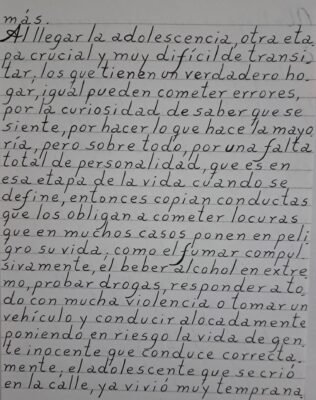 más.
Al llegar la adolescencia, otra eta
pa crucial y muy difícil de transi
tar, los que tienen un verdadero ho
gar, igual pueden cometer errores,
por la curiosidad de saber que se
siente, por hacer lo que hace la mayo
ría, pero sobre todo, por una falta
total de personalidad, que es en
esa etapa de la vida cuando se
define, entonces copian conductas
que los obligan a cometer locuras
que en muchos casos ponen en peli
gro su vida, como el fumar compul
sivamente, el beber alcohol en extre
mo, probar drogas, responder a to
do con mucha violencia o tomar un
vehículo y conducir alocadamente
poniendo en riesgo la vida de gen
te inocente que conduce correcta-
mente, el adolescente que se crió
en la calle, ya vivió muy temprana